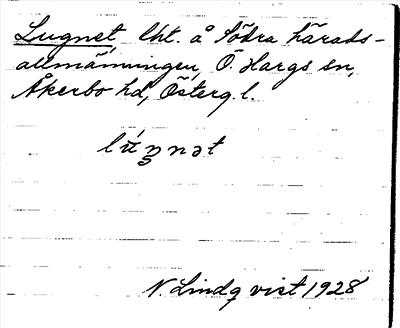 Lugnet lht. å Södra härads-
allmänningen, Ö. Hargs sn,
Åkerbo hd, Österg.l.
lú̄ŋnət
N. Lindqvist 1928